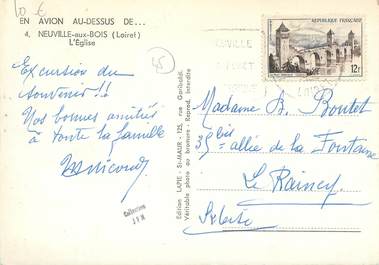 10 €
EN AVION AU-DESSUS DE...
4. NEUVILLE-aux-BOIS (Loiret)
L'Église
45
Excursion du
souvenir !!
Nos bonnes amitiés
à toute la famille
Collection
Edition LAPIE - St-MAUR - 125, rue Garibaldi.
Véritable photo au bromure - Reprod. interdite
NEUVILLE
RÉPUBLIQUE FRANÇAISE
12F
Madame B. Boutet
35 bis allée de la Fontaine
Le Raincy
S. et Oise